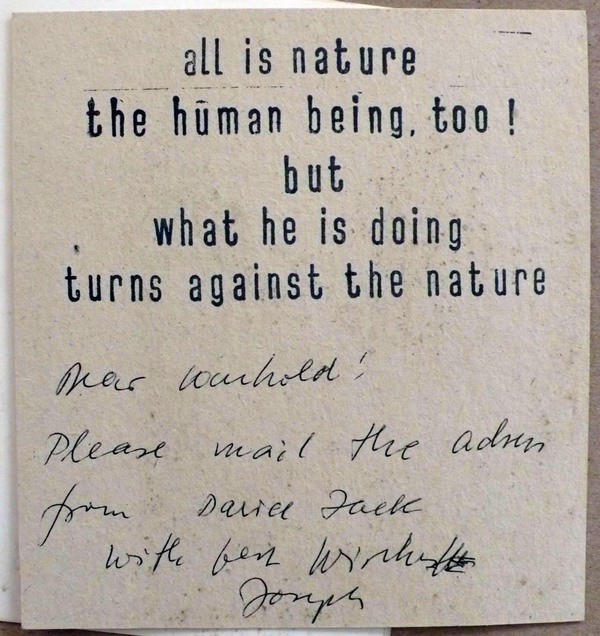 all is nature
the human being, too !
but
what he is doing
turns against the nature
Dear
Please mail the adress
from David Jack
with best Wishes
Joseph